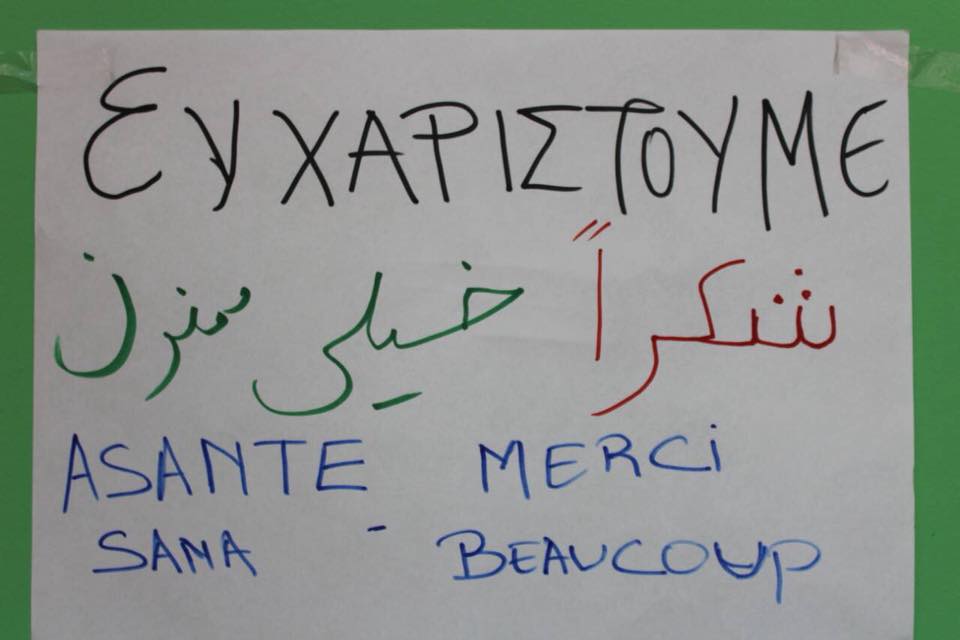 ΕΥΧΑΡΙΣΤΟΥΜΕ
شكراً خیلی ممنون
ASANTE MERCi
SANA - BEAUCOUP